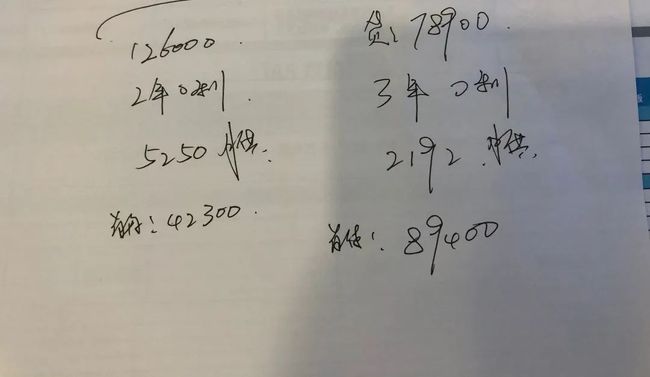 126000.
2年0利.
5250月供.
首付:42300.
贷:78900
3年0利
2192月供.
首付:89400